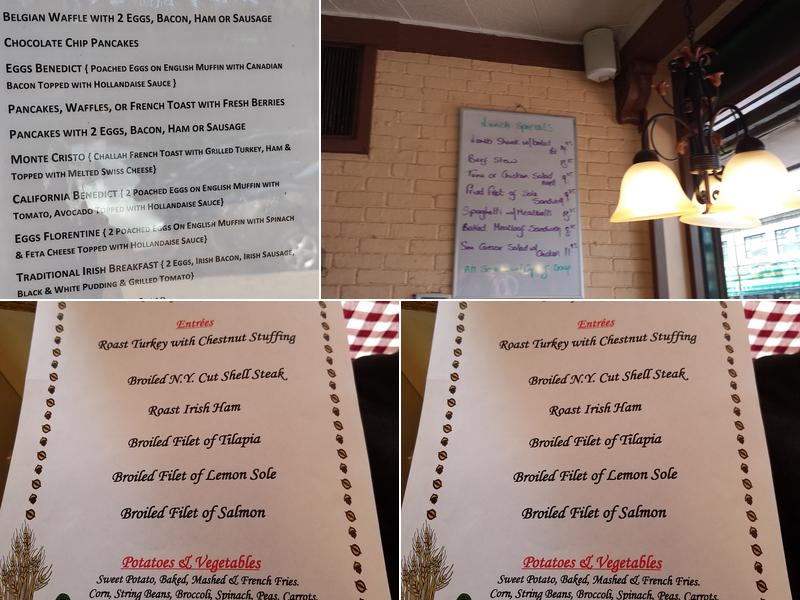 BELGIAN WAFFLE WITH 2 EGGS, BACON, HAM OR SAUSAGE
CHOCOLATE CHIP PANCAKES
EGGS BENEDICT { POACHED EGGS ON ENGLISH MUFFIN WITH CANADIAN
BACON TOPPED WITH HOLLANDAISE SAUCE }
PANCAKES, WAFFLES, OR FRENCH TOAST WITH FRESH BERRIES
PANCAKES WITH 2 EGGS, BACON, HAM OR SAUSAGE
MONTE CRISTO { CHALLAH FRENCH TOAST WITH GRILLED TURKEY, HAM &
TOPPED WITH MELTED SWISS CHEESE}
CALIFORNIA BENEDICT { 2 POACHED EGGS ON ENGLISH MUFFIN WITH
TOMATO, AVOCADO TOPPED WITH HOLLANDAISE SAUCE}
EGGS FLORENTINE { 2 POACHED EGGS ON ENGLISH MUFFIN WITH SPINACH
& FETA CHEESE TOPPED WITH HOLLANDAISE SAUCE}
TRADITIONAL IRISH BREAKFAST { 2 EGGS, IRISH BACON, IRISH SAUSAGE,
BLACK & WHITE PUDDING & GRILLED TOMATO}
Lunch Specials
Beef Stew
Tuna or Chicken Salad
Fried Filet of Sole
Sandwich
Spaghetti w/Meatballs
Baked Meatloaf Sandwich
Caesar Salad w/
Chicken
Entrées
Roast Turkey with Chestnut Stuffing
Broiled N.Y. Cut Shell Steak
Roast Irish Ham
Broiled Filet of Tilapia
Broiled Filet of Lemon Sole
Broiled Filet of Salmon
Potatoes & Vegetables
Sweet Potato, Baked, Mashed & French Fries.
Corn, String Beans, Broccoli, Spinach, Peas, Carrots.
Entrées
Roast Turkey with Chestnut Stuffing
Broiled N.Y. Cut Shell Steak
Roast Irish Ham
Broiled Filet of Tilapia
Broiled Filet of Lemon Sole
Broiled Filet of Salmon
Potatoes & Vegetables
Sweet Potato, Baked, Mashed & French Fries.
Corn, String Beans, Broccoli, Spinach, Peas, Carrots.